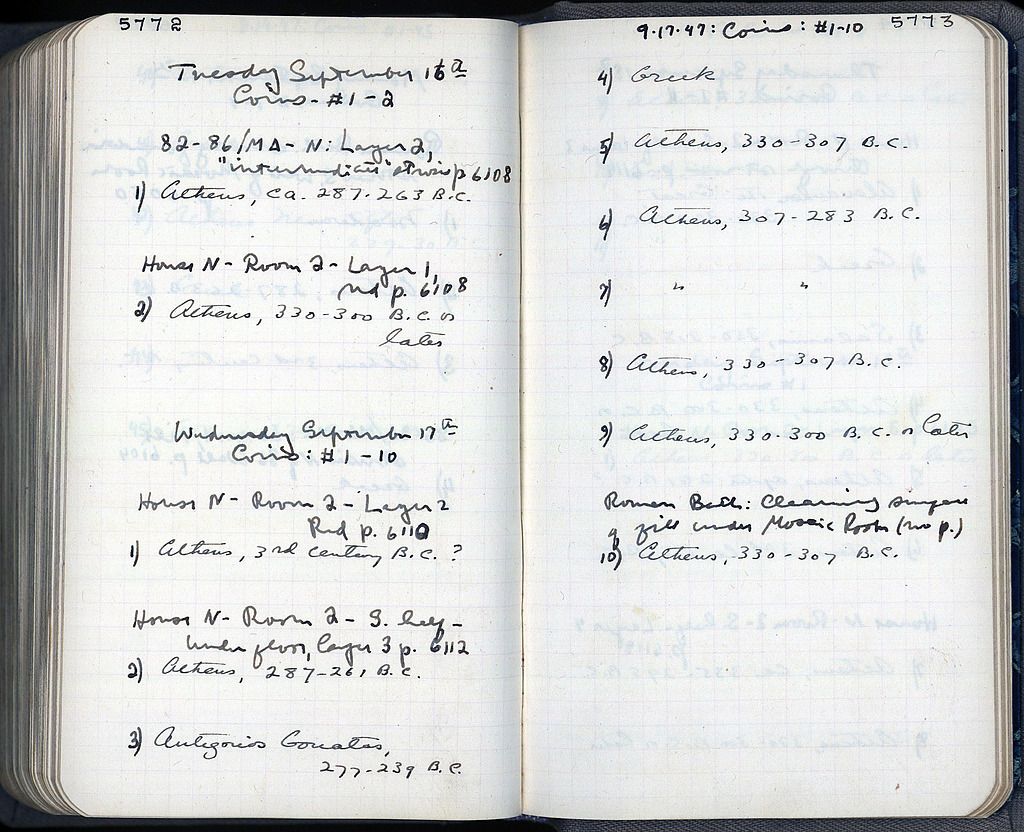 5772
Tuesday September 16th
Coins - #1-2
82-86/MA-N: Layer 2,
"intermediate" strosis p 6108
1) Athens, ca. 287-263 B.C.
House N- Room 2- Layer 1,
p. 6108
2) Athens, 330-300 B.C. or
later
Wednesday September 17th
Coins: #1-10
House N- Room 2- Layer 2
Red p. 6110
1) Athens, 3rd century B.C. ?
House N- Room 2- S. half-
under floor, layer 3 p. 6112
2) Athens, 287-261 B.C.
3) Antigonos Gonatas,
277-239 B.C.
9-17-47: Coins: #1-10
5773
4) Greek
5) Athens, 330-307 B.C.
6) Athens, 307-283 B.C.
7) " "
8) Athens, 330-307 B.C.
9) Athens, 330-300 B.C. or later
Roman Bath: Cleaning
fill under Mosaic Room (no p.)
10) Athens, 330-307 B.C.